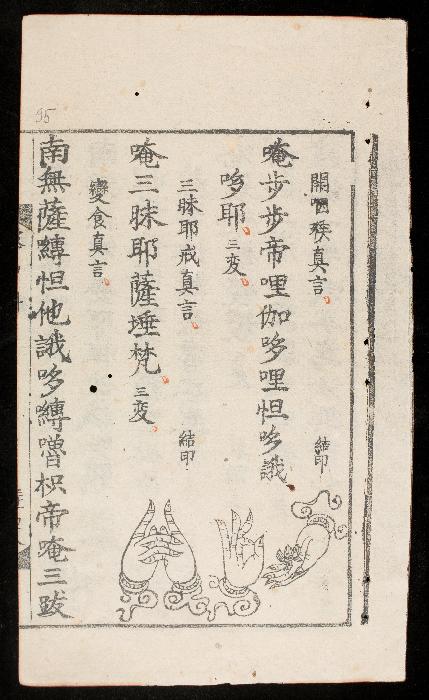 開咽喉真言 結印
唵步步帝哩伽哆哩怛哆誐
哆耶三变
三昧耶戒真言 結印
唵三昧耶薩埵梵三变
變食真言
南無薩嚩怛他誐哆嚩嚕枳帝唵三跋
95